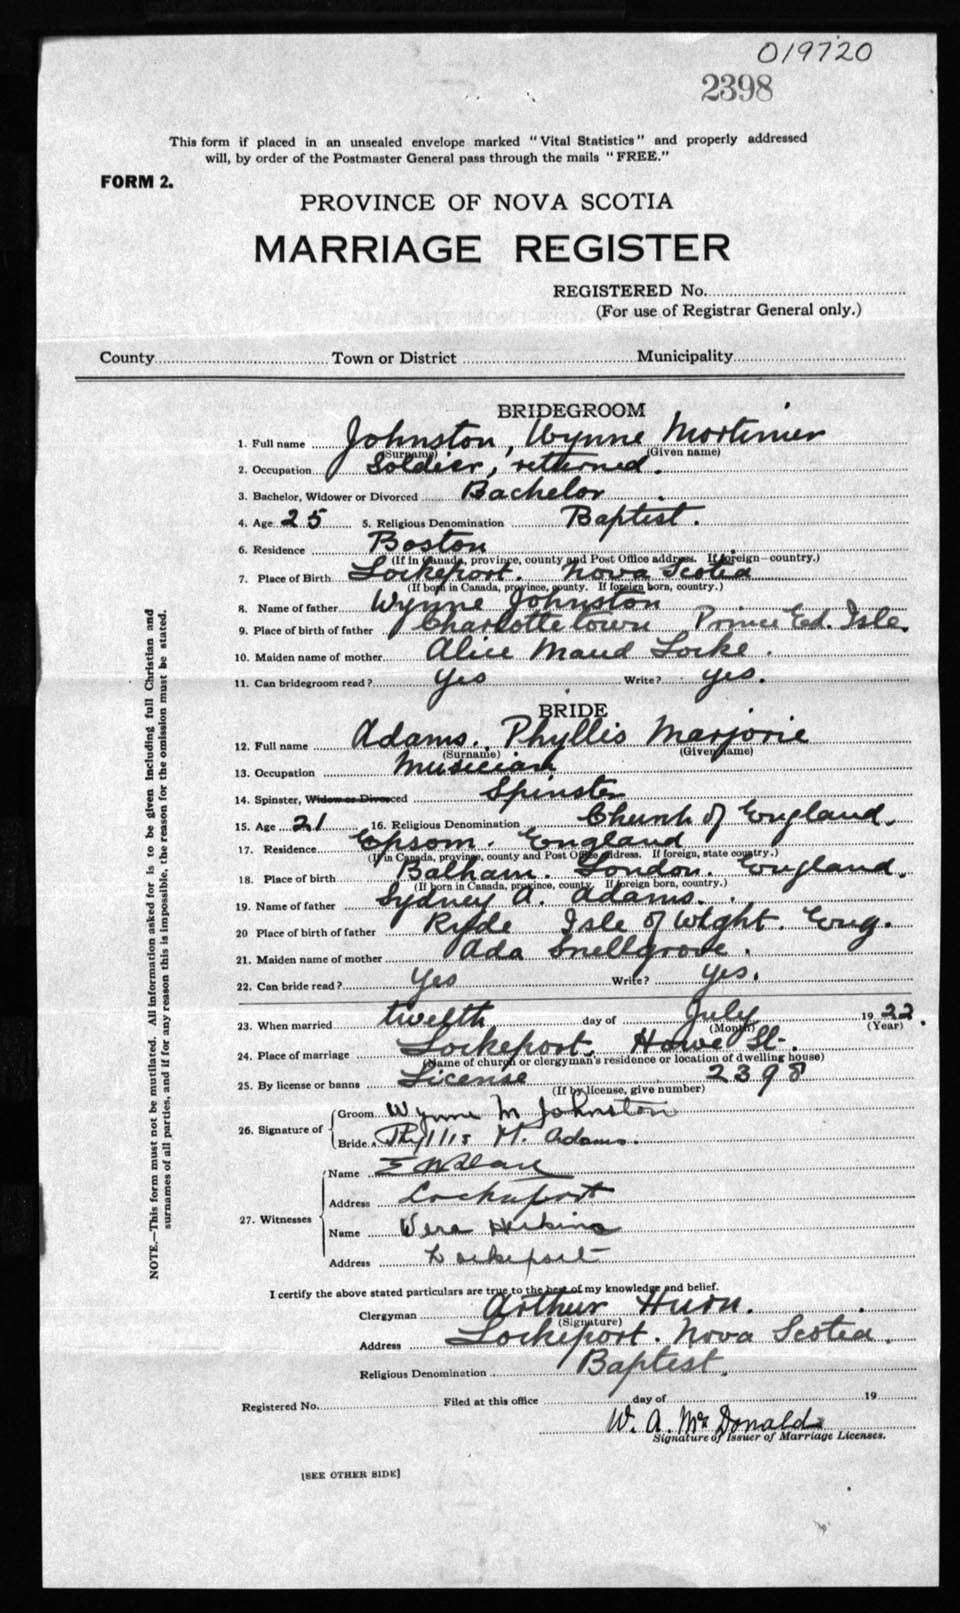 019720
2398
This form if placed in an unsealed envelope marked "Vital Statistics" and properly addressed
will, by order of the Postmaster General pass through the mails "FREE."
FORM 2.
PROVINCE OF NOVA SCOTIA
MARRIAGE REGISTER
REGISTERED No.
(For use of Registrar General only.)
County Town or District Municipality
BRIDEGROOM
1. Full name Johnston, Wynne Mortimer
(Surname) (Given name)
2. Occupation Soldier, returned.
3. Bachelor, Widower or Divorced Bachelor
4. Age 25 5. Religious Denomination Baptist.
6. Residence Boston
(If in Canada, province, county and Post Office address. If foreign—country.)
7. Place of Birth Lockeport. Nova Scotia
(If born in Canada, province, county. If foreign born, country.)
8. Name of father Wynne Johnston
9. Place of birth of father Charlottetown Prince Ed. Isle.
10. Maiden name of mother Alice Maud Locke.
11. Can bridegroom read? Yes Write? yes.
BRIDE
12. Full name Adams. Phyllis Marjorie
(Surname) (Given name)
13. Occupation Musician
14. Spinster, Widow or Divorced Spinster
15. Age 21 16. Religious Denomination Church of England.
17. Residence Epsom. England
(If in Canada, province, county and Post Office address. If foreign, state country.)
18. Place of birth Balham. London. England.
(If born in Canada, province, county. If foreign born, country.)
19. Name of father Sydney A. Adams.
20 Place of birth of father Ryde Isle of Wight. Eng.
21. Maiden name of mother Ada Snellgrove.
22. Can bride read? Yes Write? yes.
23. When married twelth day of July 1922.
(Month) (Year)
24. Place of marriage Lockeport. Howe St.
(Name of church or clergyman's residence or location of dwelling house)
25. By license or banns License 2398
(If by license, give number)
26. Signature of
Groom Wynne M Johnston
Bride Phyllis M. Adams.
27. Witnesses
Name
Address Lockeport
Name Vera
Address Lockeport
I certify the above stated particulars are true to the best of my knowledge and belief.
Clergyman Arthur
(Signature)
Address Lockeport. Nova Scotia.
Religious Denomination Baptist.
Registered No. Filed at this office day of 19
W. A. McDonald
Signature of Issuer of Marriage Licenses.
[SEE OTHER SIDE]
NOTE.—This form must not be mutilated. All information asked for is to be given including full Christian and
surnames of all parties, and if for any reason this is impossible, the reason for the omission must be stated.